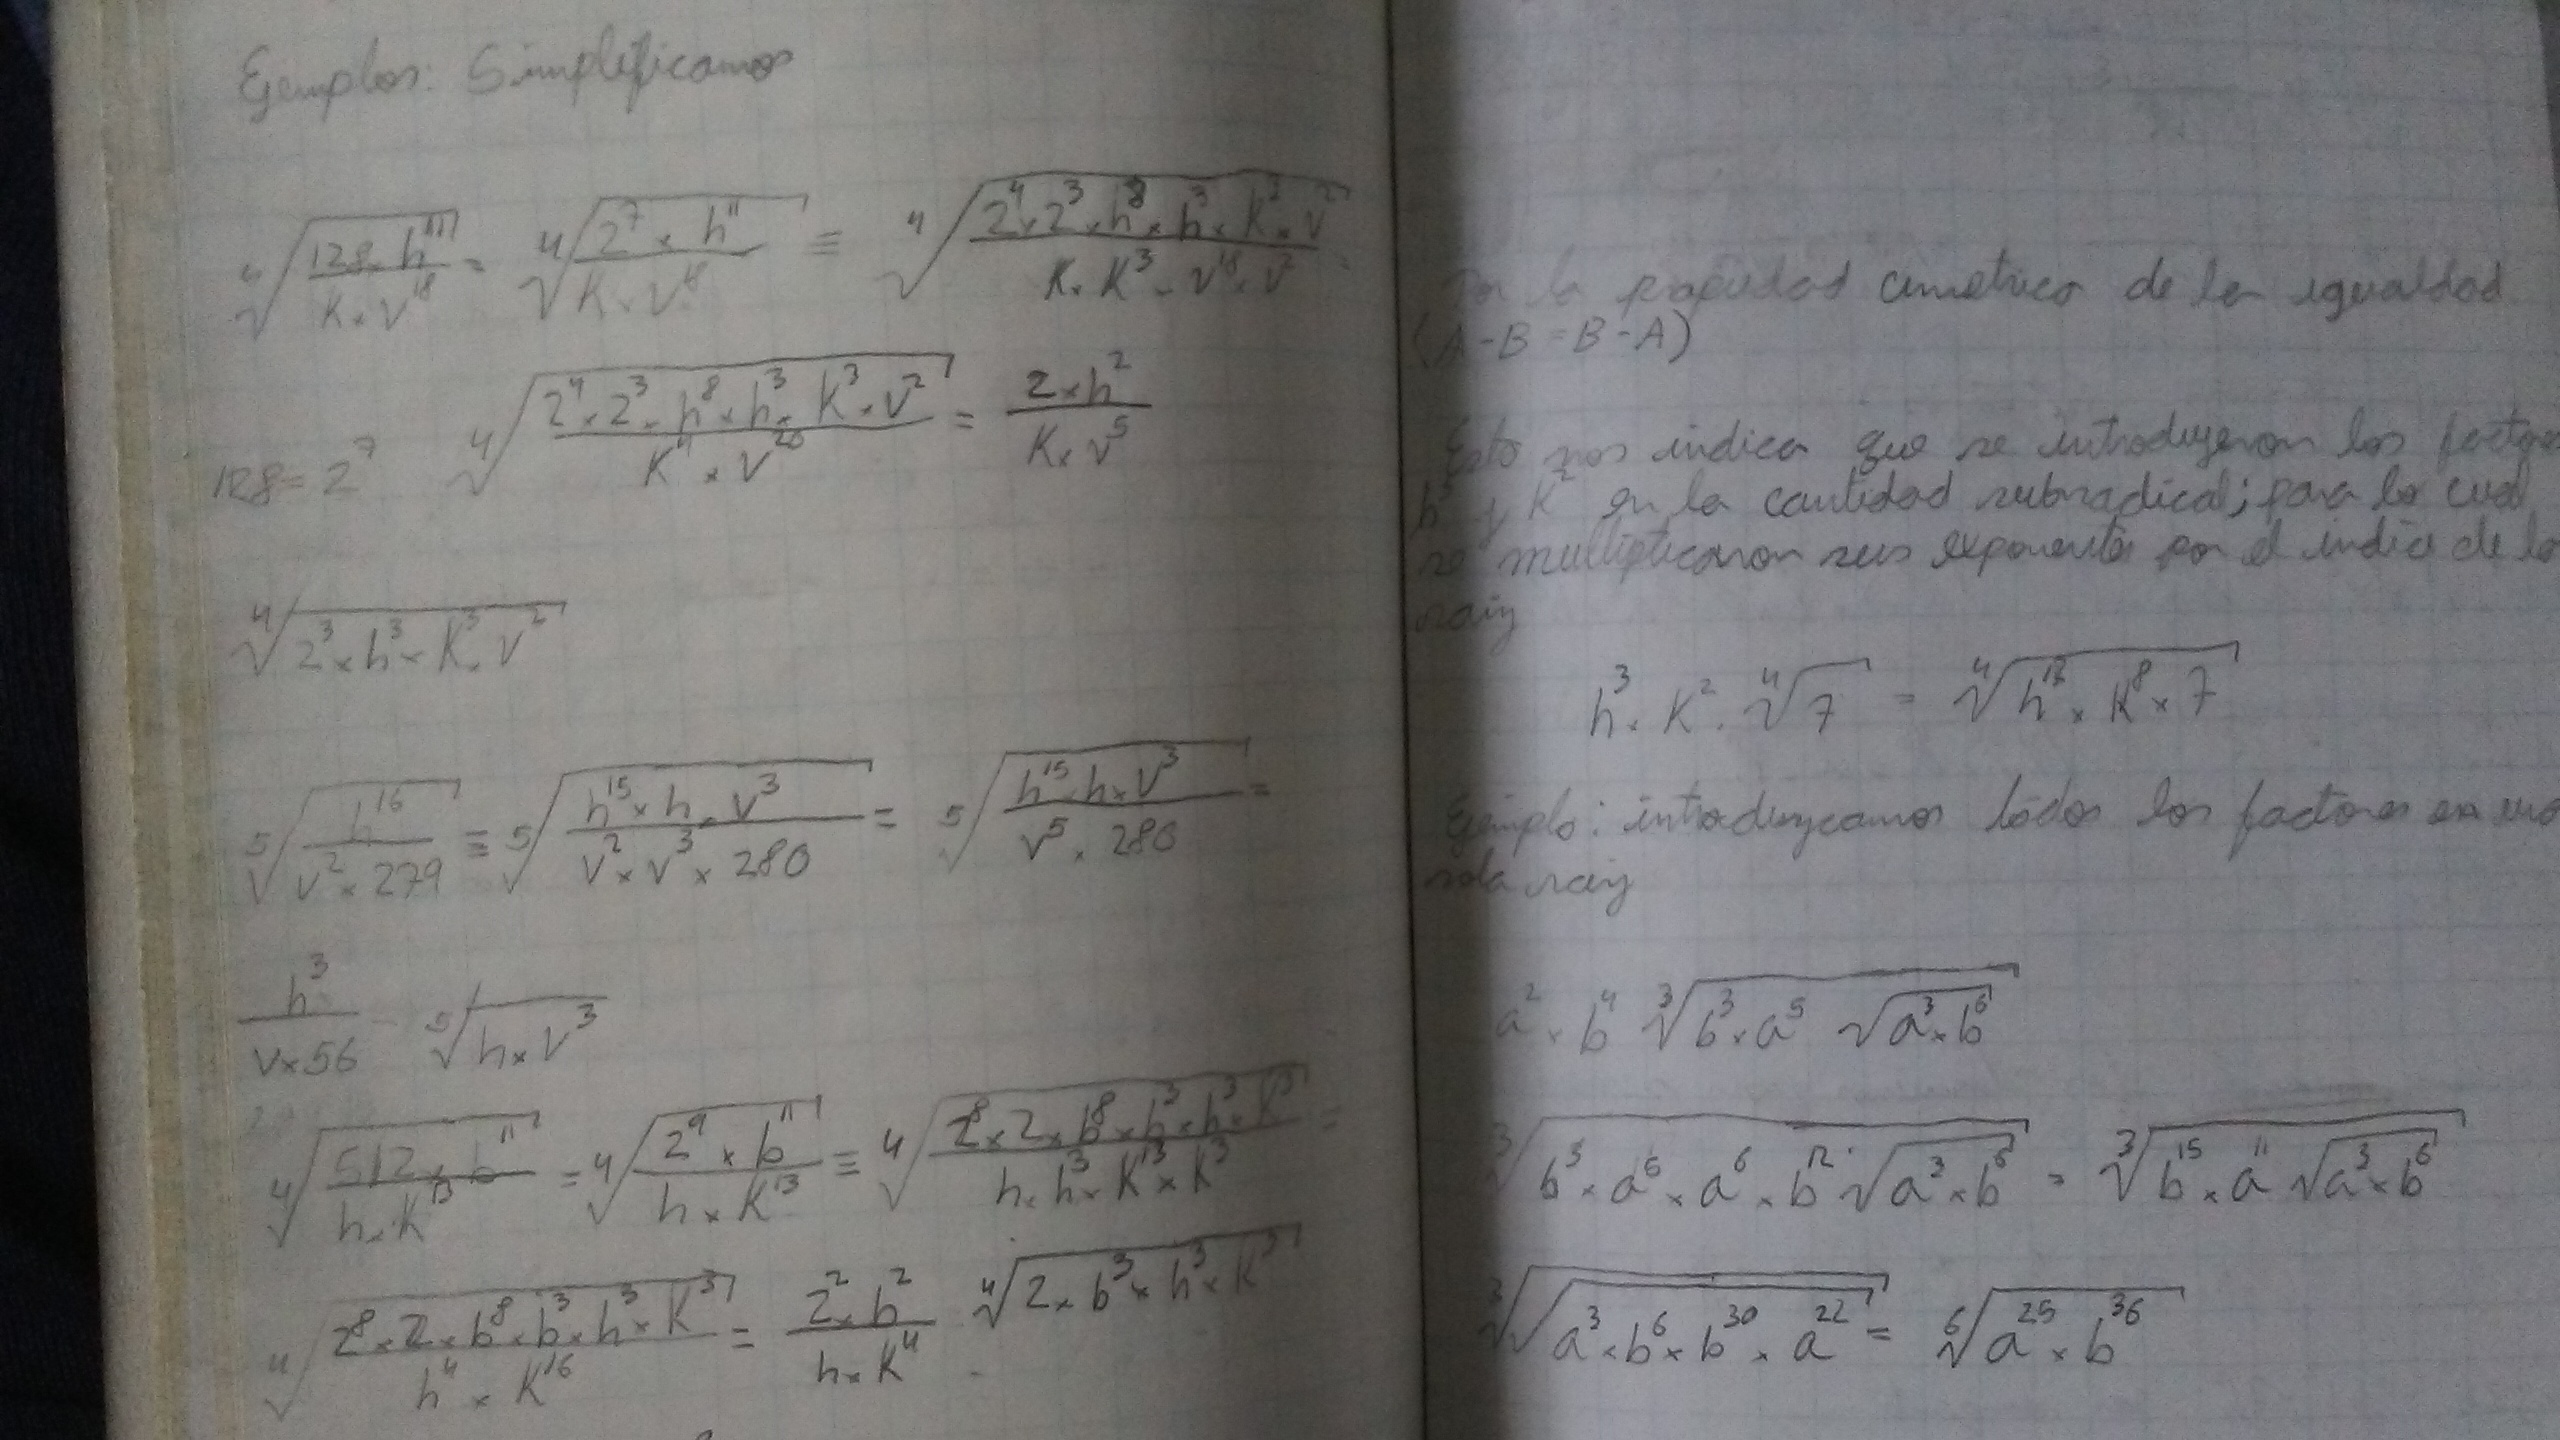 Ejemplos: Simplificamos
⁴√(128 × h¹¹ / K × v¹⁸) = ⁴√(2⁷ × h¹¹ / K × v¹⁸) = ⁴√(2⁴ × 2³ × h⁸ × h³ × K³ × v² / K × K³ × v¹⁸ × v²) =
128 = 2⁷ ⁴√(2⁴ × 2³ × h⁸ × h³ × K³ × v² / K⁴ × v²⁰) = 2 × h² / K × v⁵
⁴√(2³ × h³ × K³ × v²)
⁵√(h¹⁶ / v² × 279) = ⁵√(h¹⁵ × h × v³ / v² × v³ × 280) = ⁵√(h¹⁵ × h × v³ / v⁵ × 280) =
h³ / v × 56 ⁵√(h × v³)
⁴√(512 × b¹¹ / h × K¹³) = ⁴√(2⁹ × b¹¹ / h × K¹³) = ⁴√(2⁸ × 2 × b⁸ × b³ × h³ × K³ / h × h³ × K¹³ × K³) =
⁴√(2⁸ × 2 × b⁸ × b³ × h³ × K³ / h⁴ × K¹⁶) = 2² × b² / h × K⁴ ⁴√(2 × b³ × h³ × K³)
la propiedad cimetrica de la igualdad
(A - B = B - A)
Esto nos indica que se introdujeron los
h³ y K² en la cantidad subradical; para lo cual
se multiplicaron sus exponentes por el indice de la
raiz
h³ × K² · ⁴√7 = ⁴√(h¹² × K⁸ × 7)
Ejemplo: introduzcamos todos los factores en una
sola raiz
a² × b⁴ ³√(b³ × a⁵ √(a³ × b⁶))
³√(b³ × a⁵ × a⁶ × b¹² √(a³ × b⁶)) = ³√(b¹⁵ × a¹¹ √(a³ × b⁶))
³√√(a³ × b⁶ × b³⁰ × a²²) = ⁶√(a²⁵ × b³⁶)